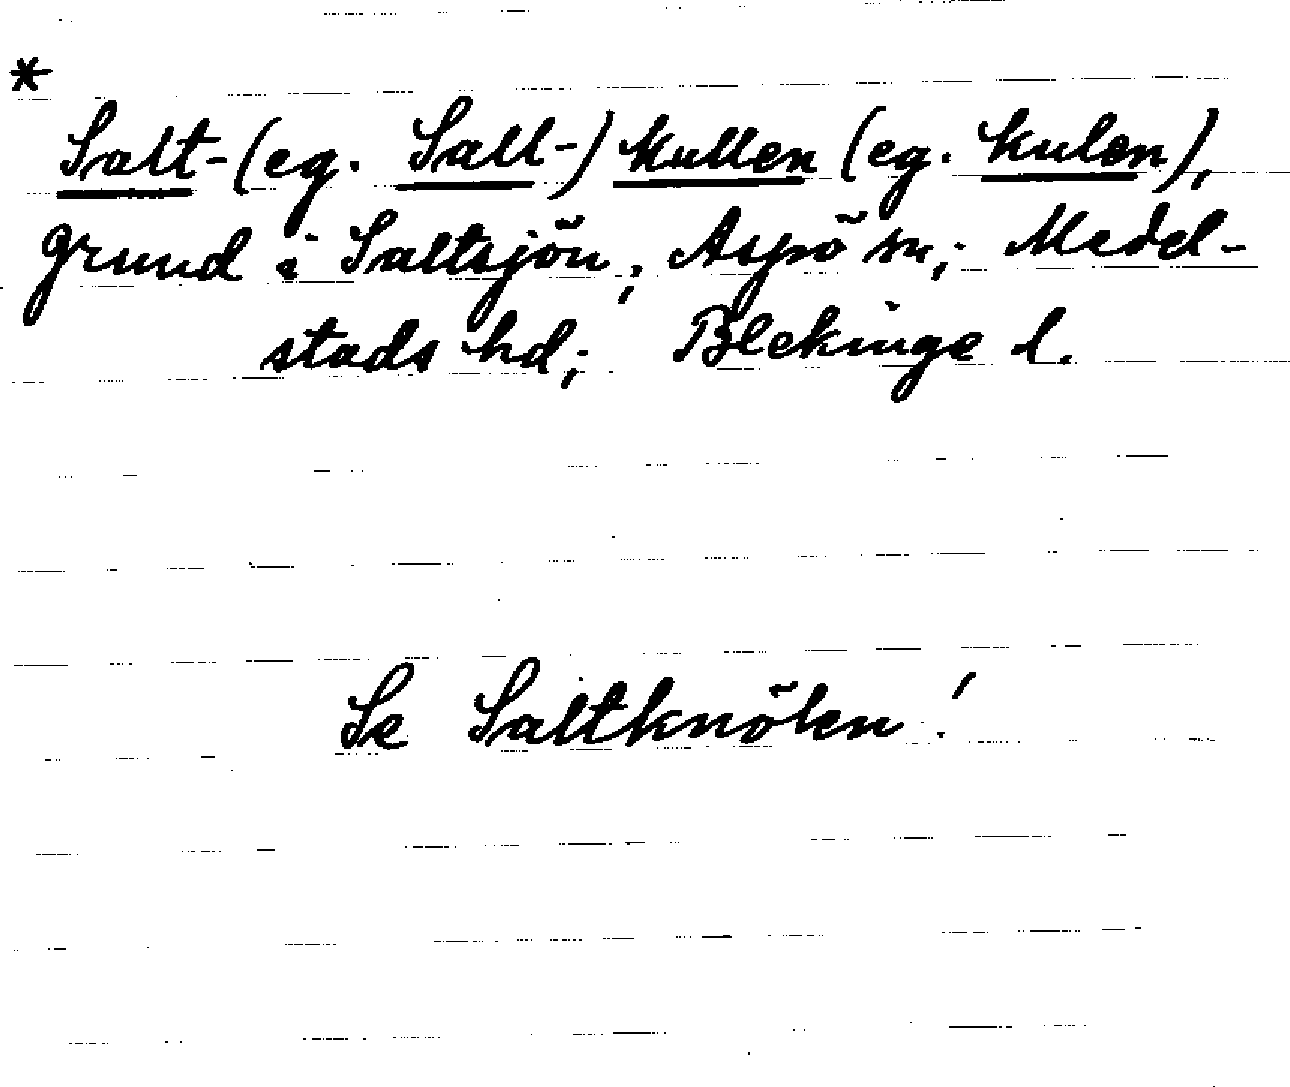 *
Salt-(eg. Sall-) kullen (eg. kulen),
grund i Saltsjön; Aspö sn; Medel-
stads hd; Blekinge l.
Se Saltknölen!